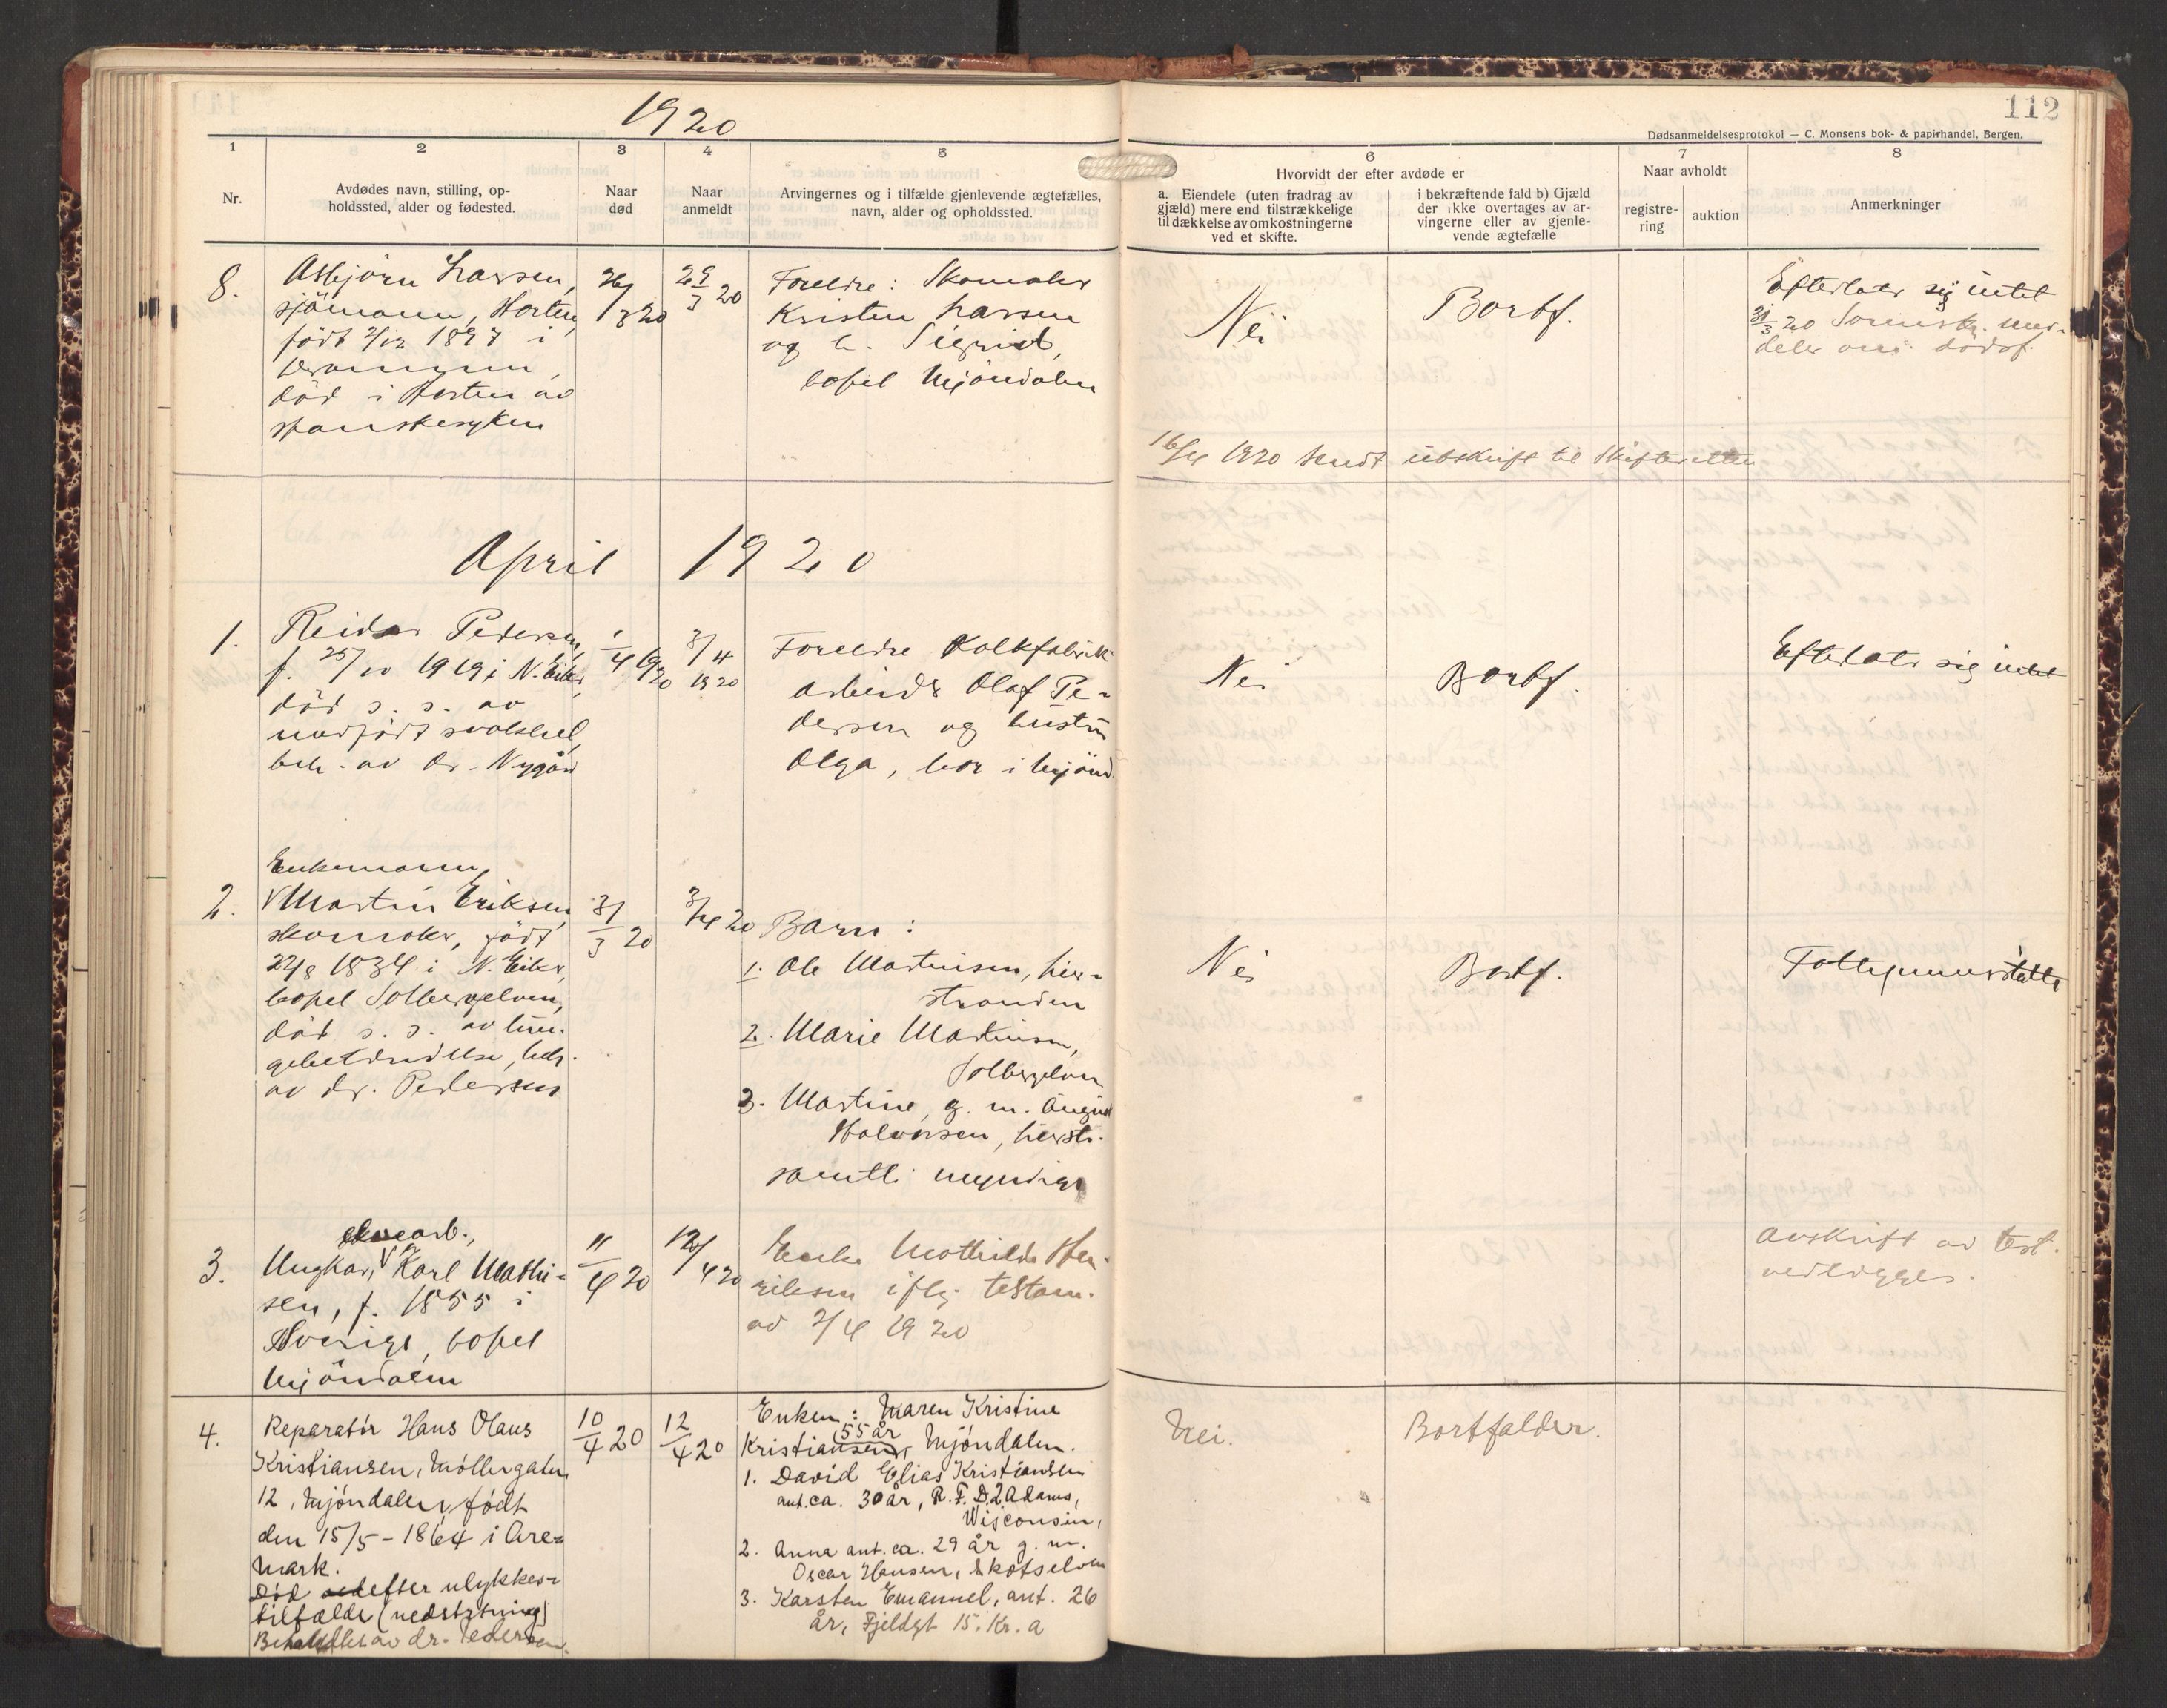 1920
112
Dødsanmeldelsesprotokol — C. Monsens bok- & papirhandel, Bergen.
1
2
3
4
5
6
7
8
Nr.
Avdødes navn, stilling, op-
holdssted, alder og fødested.
Naar
død
Naar
anmeldt
Arvingernes og i tilfælde gjenlevende ægtefælles,
navn, alder og opholdssted.
Hvorvidt der efter avdøde er
a. Eiendele (uten fradrag av
gjæld) mere end tilstrækkelige
til dækkelse av omkostningerne
ved et skifte.
i bekræftende fald b) Gjæld
der ikke overtages av ar-
vingerne eller av gjenle-
vende ægtefælle
Naar avholdt
registre-
ring
auktion
Anmerkninger
8.
Asbjörn Larsen,
sjömann, Horten,
født 2/12 1897 i
død i Horten av
spanskesyken
26/3 20
29/3 20
Foreldre: Skomaker
Kristen Larsen
og h. Sigrid,
bopel Mjöndalen
Nei
Bortf.
Efterlater sig intet
31/3 20 Sorenskr. med-
deler om dødsf.
16/4 1920 sendt utskrift til Skifteretten
April 1920
1.
Reidar Pedersen,
f. 25/10 1919 i N. Eiker,
död s. s. av
medfødt svakhet,
beh. av dr. Nygård
1/4 1920
3/4 1920
Foreldre Kalkfabrik
arbeider Olaf Pe-
dersen og hustru
Olga, bor i Mjönd.
Nei
Bortf.
Efterlater sig intet
2.
Enkemann,
Martin Eriksen,
skomaker, født
22/8 1834 i N. Eiker,
bopel Solbergelven,
död s. s. av lun-
gebetendelse, beh.
av dr. Pedersen
31/3 20
3/4 20
Barn:
1. Ole Martinsen, hier-
stranden
2. Marie Martinsen,
Solbergelven
3. Martine, g. m. August
Halvorsen, hierstr.
samtl. myndige
Nei
Bortf.
Fattigunderstötte
3.
elvearb.,
Ungkar, Karl Mathi-
sen, f. 1855 i
Sverige, bopel
Mjöndalen
11/4 20
12/4 20
Enke Mathilde Hen-
riksen iflg. testam.
av 2/4 1920
avskrift av test.
vedlægges.
4.
Reparatör Hans Olaus
Kristiansen, Möllergaten
12, Mjöndalen, født
den 15/5 - 1864 i Are-
mark.
Död efter ulykkes-
tilfælde (nedstyrtning)
Behandlet av dr. Pedersen.
10/4 20
12/4 20
Enken: Maren Kristine
55 år
Kristiansen, Mjöndalen.
1. David Elias Kristiansen
ant. ca. 30 år, R. F. D. 2 Adams,
Wisconsin,
2. Anna ant. ca. 29 år g. m.
Oscar Hansen, Skotselven
3. Karsten Emanuel, ant. 26
år, Fjeldgt 15. Kr. a
Nei.
Bortfalder.